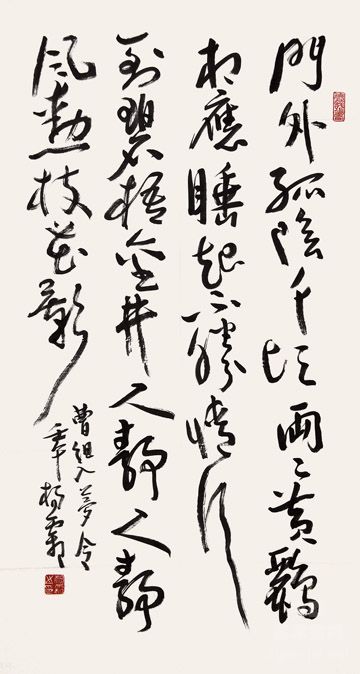 門外綠陰千頃兩〻黃鸝
相應睡起不勝情行
到碧梧金井人靜人靜
風動一枝花影
曹組如夢令